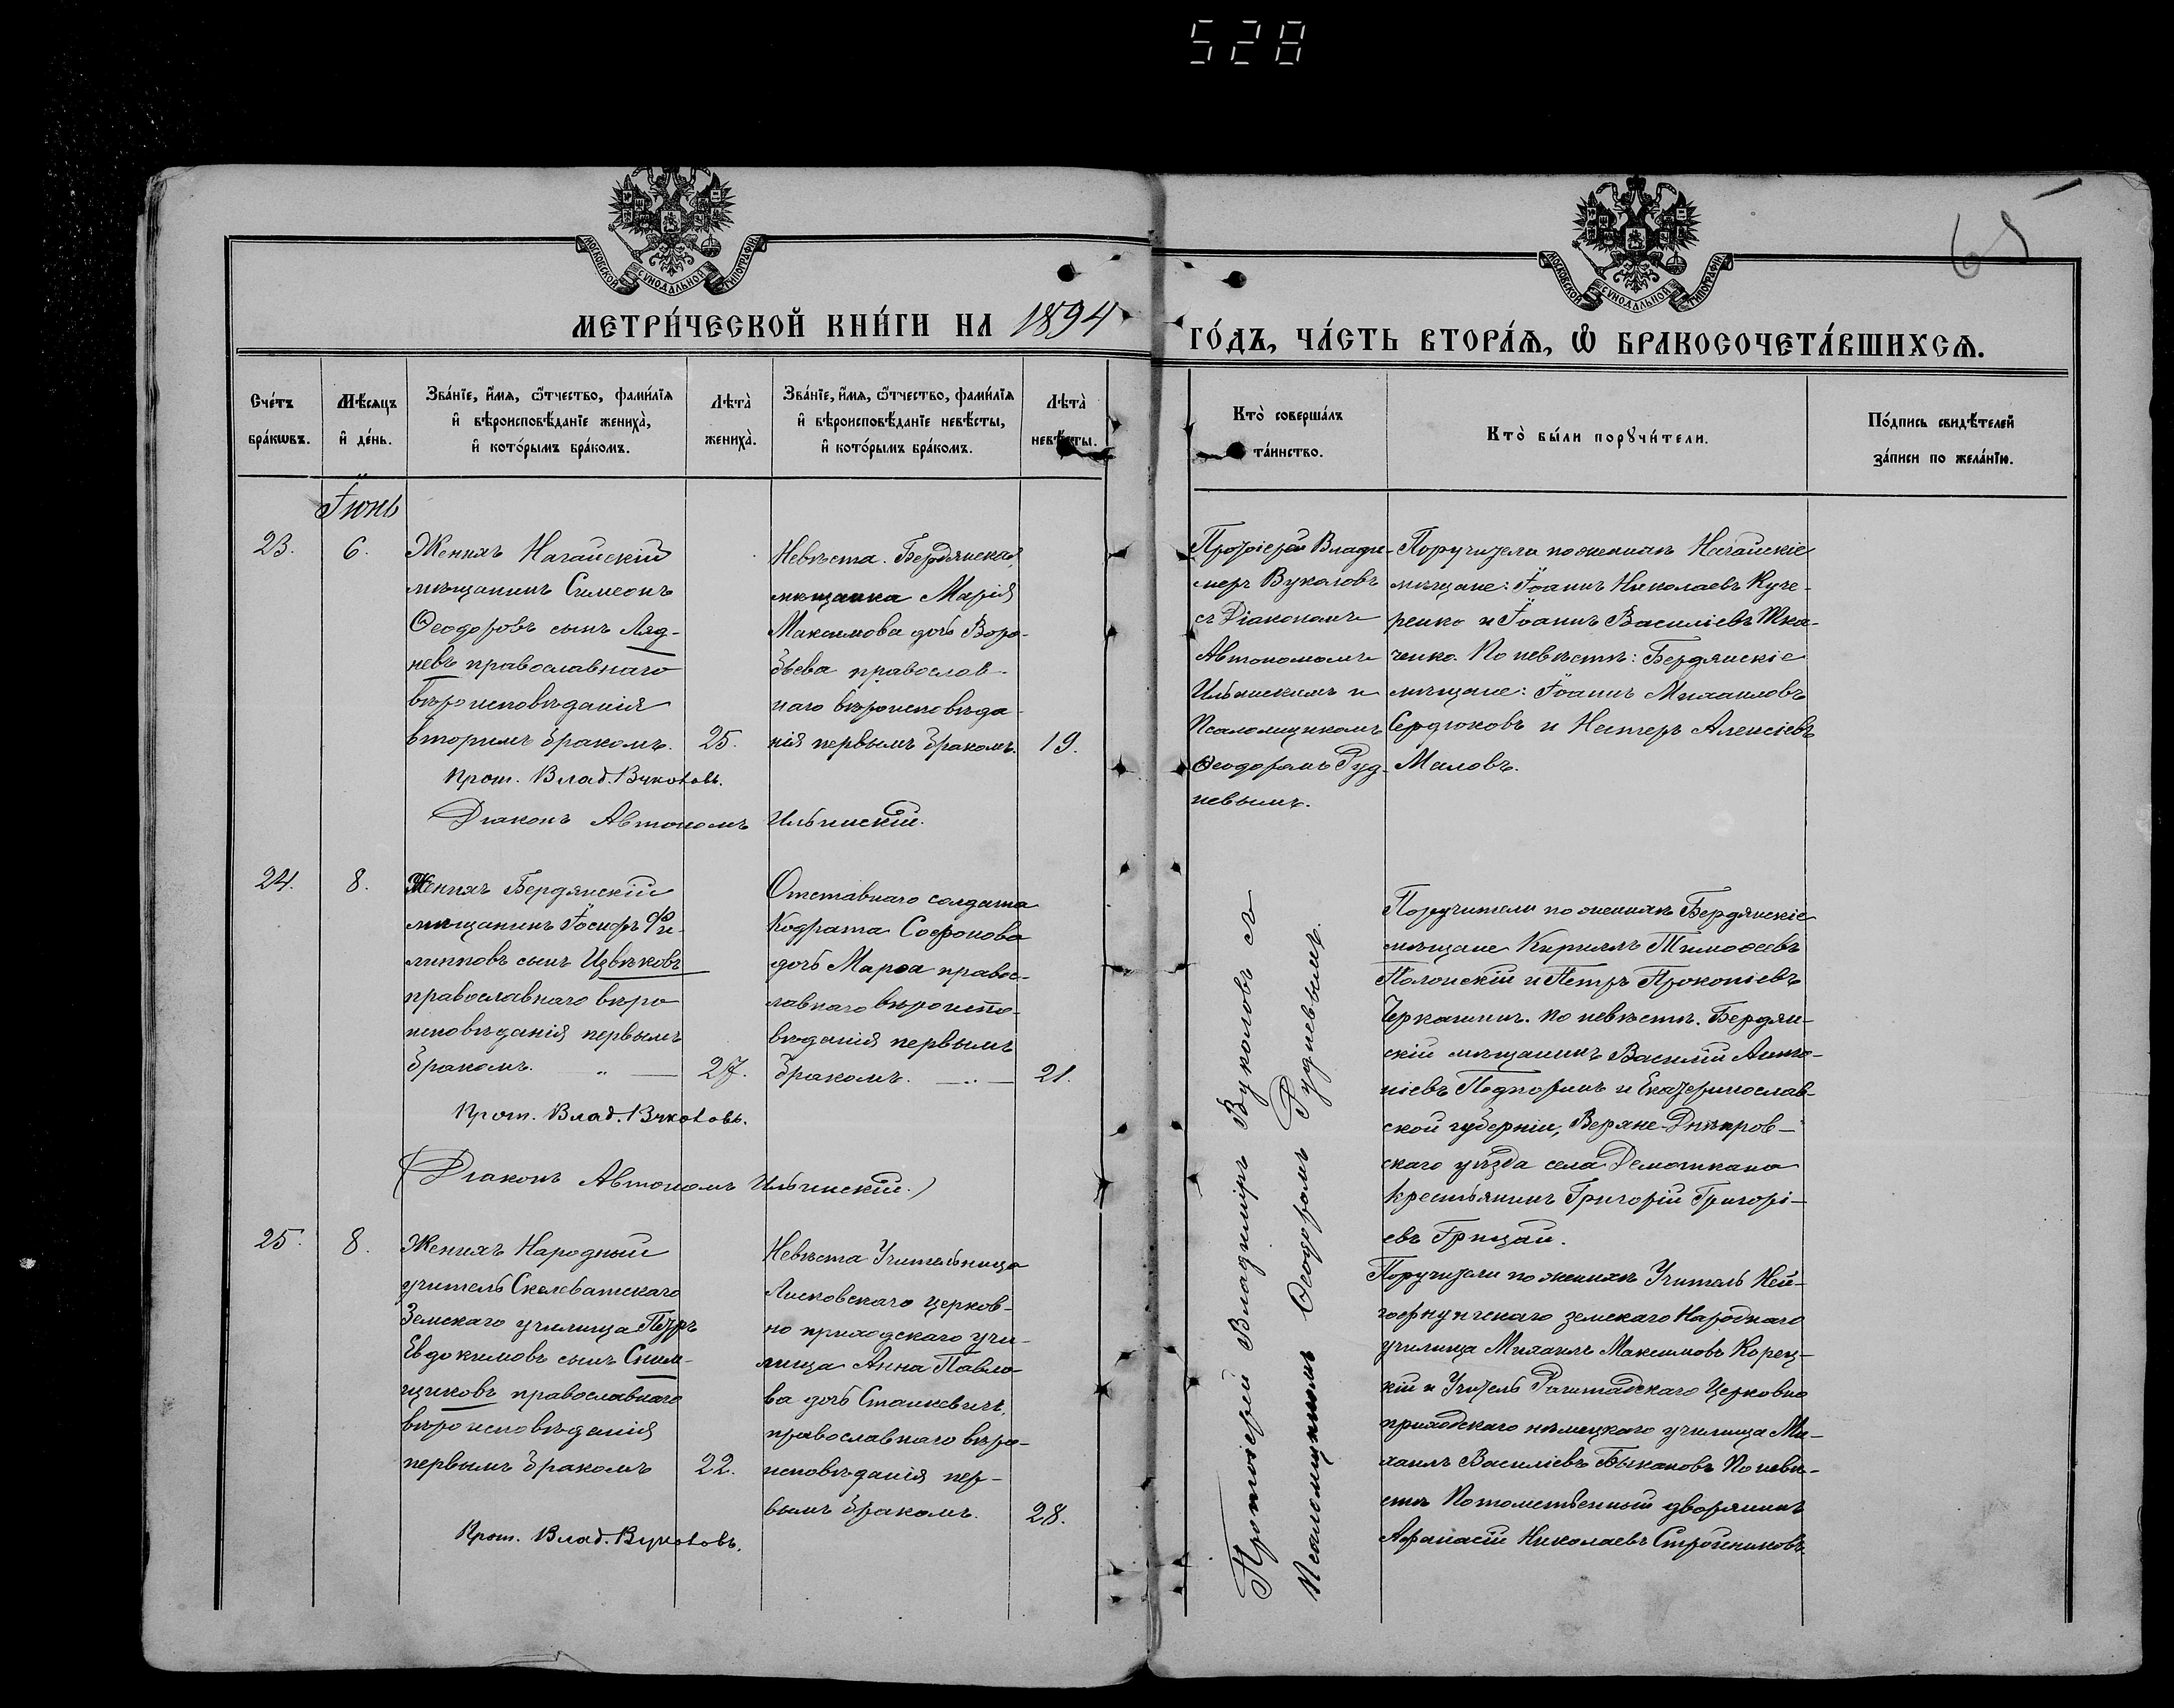 528
65
МОСКОВСКОЙ СѴНОДАЛЬНОЙ ТИПОГРАФІИ
МОСКОВСКОЙ СѴНОДАЛЬНОЙ ТИПОГРАФІИ
МЕТРИ́ЧЕСКОЙ КНИ́ГИ НА 1894
ГО́ДЪ, ЧА́СТЬ ВТОРА́Ѧ, Ѽ БРАКОСОЧЕТА́ВШИХСѦ.
Сче́тъ
бра́кѡвъ.
Мѣ́сѧцъ
и҆ де́нь.
Зва́нїе, и҆́мѧ, ѻ҆́тчество, фами́лїѧ
и҆ вѣроисповѣ́данїе жениха̀,
и҆ кото́рымъ бра́комъ.
Лѣ́та̀
жениха̀.
Зва́нїе, и҆́мѧ, ѻ҆́тчество, фами́лїѧ
и҆ вѣроисповѣ́данїе невѣ́сты,
и҆ кото́рымъ бра́комъ.
Лѣ́та̀
невѣ́сты.
Кто̀ соверша́лъ
та́инство.
Кто̀ бы́ли порꙋчи́тели.
По́дпись свидѣ́телей
за́писи по жела́нїю.
Іюнь
23.
6.
Женихъ Ногайскій
мѣщанинъ Симеонъ
Ѳеодоровъ сынъ Ляд-
невъ православнаго
вѣроисповѣданія
вторымъ бракомъ.
25.
Невѣста. Бердянская
мѣщанка Марія
Максимова дочь Воро-
бьева православ-
наго вѣроисповѣда-
нія первымъ бракомъ.
19.
Прот. Влад. Вуколовъ.
Діаконъ Автономъ Ильинскій.
Протоіерей Влади-
миръ Вуколовъ
съ Діакономъ
Автономомъ
Ильинскимъ и
Псаломщикомъ
Ѳеодоромъ Руд-
невымъ.
Поручители по женихѣ Ногайскіе
мѣщане: Іоаннъ Николаевъ Куче-
ренко и Іоаннъ Василіевъ Тка-
ченко. По невѣстѣ: Бердянскіе
мѣщане: Іоаннъ Михаиловъ
Сердюковъ и Несторъ Алексіевъ
Маловъ.
24.
8.
Женихъ Бердянскій
мѣщанинъ Іосифъ Фи-
липповъ сынъ Извѣковъ
православнаго вѣро
исповѣданія первымъ
бракомъ. — „ —
27.
Отставнаго солдата
Кодрата Софонова
дочь Марѳа правос-
лавнаго вѣроиспо-
вѣданія первымъ
бракомъ. — „ —
21.
Прот. Влад. Вуколовъ.
(Діаконъ Автономъ Ильинскій.)
Протоіерей Владиміръ Вуколовъ съ
Псаломщикомъ Ѳеодоромъ Рудневымъ.
Поручители по женихѣ Бердянскіе
мѣщане Кириллъ Тимоѳеевъ
Полонскій и Петръ Прокопіевъ
Черкашинъ. По невѣстѣ. Бердян-
скій мѣщанинъ Василій Анто-
ніевъ Подпоринъ и Екатеринослав-
ской губерніи, Верхне-Днѣпров-
скаго уѣзда села Демоткана
крестьянинъ Григорій Григорі-
евъ Грицай.
25.
8.
Женихъ Народный
учитель Скелеватскаго
Земскаго училища Петръ
Евдокимовъ сынъ Сним-
щиковъ православнаго
вѣроисповѣданія
первымъ бракомъ
22.
Невѣста Учительница
Лисковскаго церков-
но приходскаго учи-
лища Анна Павло-
ва дочь Станкевичъ,
православнаго вѣро-
исповѣданія пер-
вымъ бракомъ.
28.
Прот. Влад. Вуколовъ.
Поручители по женихѣ Учитель Ней-
гофнунгскаго земскаго Народнаго
училища Михаилъ Максимовъ Корец-
кій и Учитель Церковно
приходскаго нѣмецкаго училища Ми-
хаилъ Василіевъ Быкановъ По невѣ-
стѣ Потомственный дворянинъ
Афанасій Николаевъ Стройниковъ.